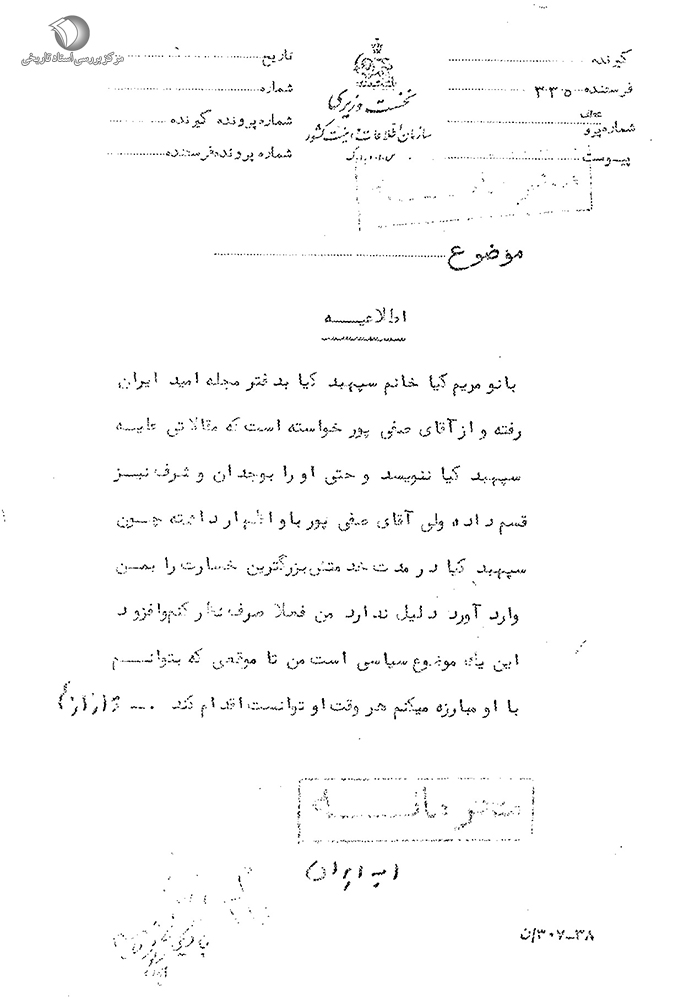 مرکز بررسی اسناد تاریخی
گیرنده
فرستنده ۳۳۵
شماره پرو
پیوست
نخست وزیری
سازمان اطلاعات و امنیت کشور
تاریخ
شماره
شماره پرونده گیرنده
شماره پرونده فرستنده
موضوع
اطلاعیه
بانو مریم کیا خانم سپهبد کیا بدفتر مجله امید ایران
رفته و از آقای صفی پور خواسته است که مقالاتی علیه
سپهبد کیا ننویسد و حتی او را بوجدان و شرف نیز
قسم داده ولی آقای صفی پور باو اظهار داشته چون
سپهبد کیا در مدت خدمتش بزرگترین خسارت را بمن
وارد آورد دلیل ندارد من فعلا صرف نظر کنم و افزود
این یک موضوع سیاسی است من تا موقعی که بتوانم
با او مبارزه میکنم هر وقت او توانست اقدام کند .
محرمانه
۳۰۷-۳۸/ن